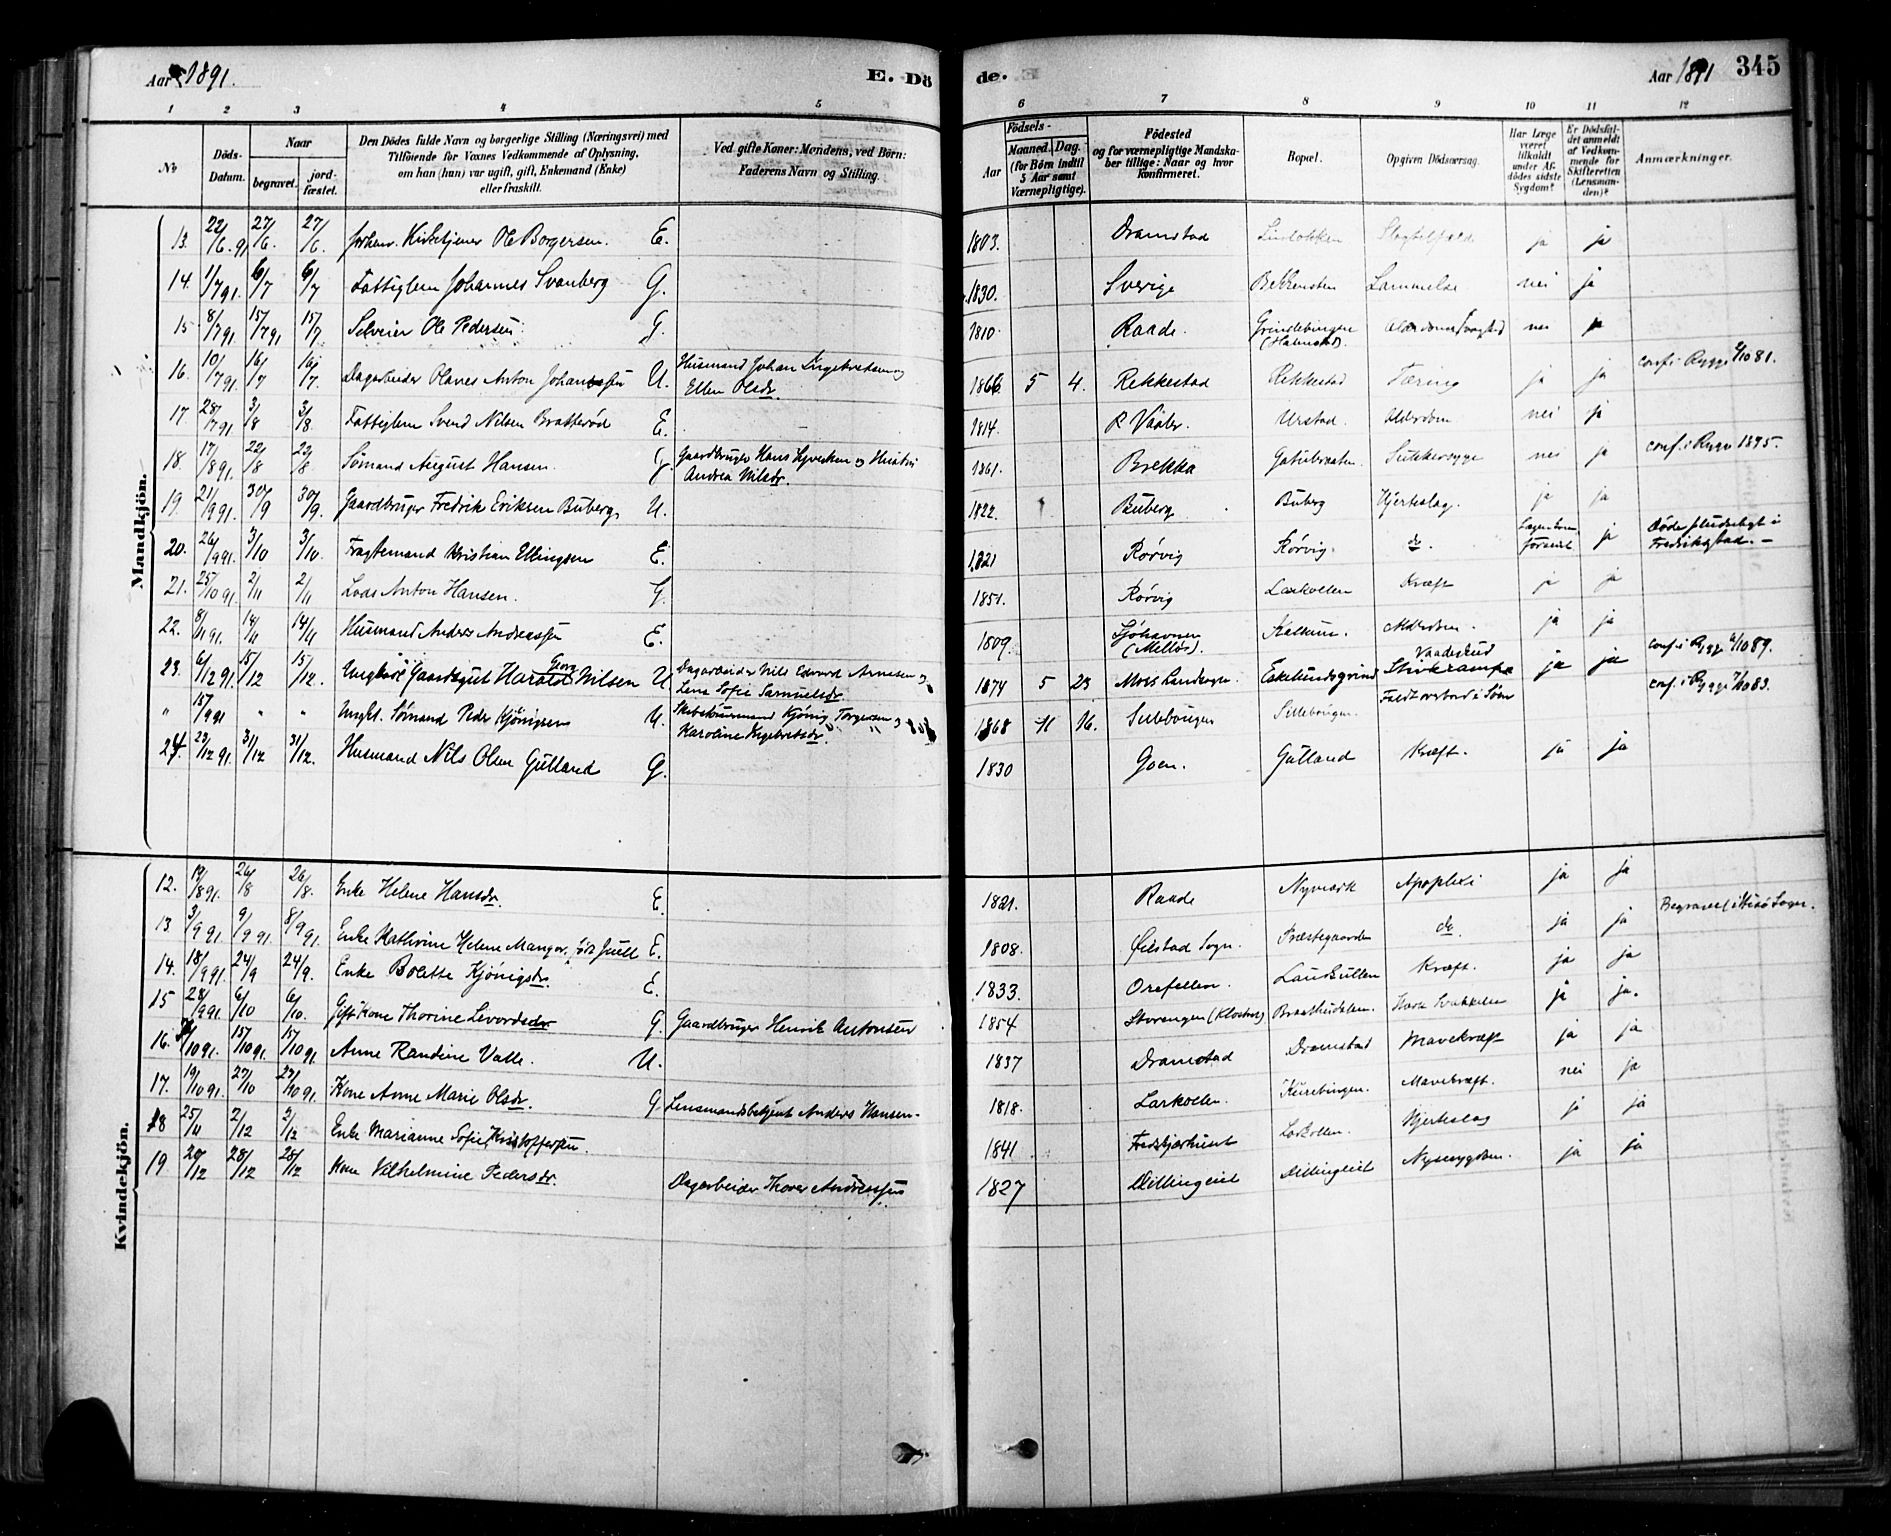 Aar 1891.
E. Dö
de.
Aar 1891
345
1 2 3 4 5 6 7 8 9 10 11 12
No
Döds-Datum.
Naar
begravet.
jord-fæstet.
Den Dödes fulde Navn og borgerlige Stilling (Næringsvei) med
Tilföiende for Voxnes Vedkommende af Oplysning,
om han (hun) var ugift, gift, Enkemand (Enke)
eller fraskilt.
Ved gifte Koner: Mandens, ved Börn:
Faderens Navn og Stilling.
Födsels-
Aar
Maaned. Dag.
(for Börn indtil
5 Aar samt
Værnepligtige).
Födested
og for værnepligtige Mandska-
ber tillige: Naar og hvor
Konfirmeret.
Bopæl.
Opgiven Dödsaarsag.
Har Læge
været
tilkaldt
under Af-
dödes sidste
Sygdom?
Er Dödsfal-
det anmeldt
af Vedkom-
mende for
Skifteretten
(Lensman-
den)?
Anmærkninger.
Mandkjön.
13. 22/6 91 27/6. 27/6 forhenv. Kirketjener Ole Borgersen. E. 1803. Dramstad ja ja
14. 1/7 91. 6/7 6/7 Fattiglem Johannes Svanberg G. 1830. Sverige Lammelse nei ja
15 8/7 91. 15/7 91 15/7 Selveier Ole Pedersen G. 1810. Raade. Grindebingen (Halmstad). nei ja
16. 10/7 91. 16/7 16/7. Dagarbeider Olaves Anton Johanssen U. Husmand Johan Ingebretsen og
Ellen Olsdr. 1866 5 4. Rekkestad Rekkestad Tæring ja ja conf. i Rygge 2/10 81.
17. 28/7 91 3/8 3/8. Fattiglem Svend Nilsen Bratterød E. 1814. Vaaler. Urstad. Alderdom nei ja
18. 17/8 91. 22/8 22/8. Sømand August Hansen. Gaardbruger Hans
Andrea Nilsdr. 1861. Brekka Gatubraaten. Sukkersyge nei ja conf. i Rygge
19. 21/9 91. 30/9 30/9. Gaardbruger Fredrik Eriksen Buberg. U. 1822. Buberg Buberg Hjerteslag. ja ja
20. 26/9 91. 3/10 3/10. Fragtemand Kristian Ellingsen E. 1821 Rørvig Rørvig. do. ja Døde pludseligt i
Fredrikstad.
21. 25/10 91. 2/11 2/11 Lods Anton Hansen. G. 1851. Rørvig Larkollen Kræft ja ja
22. 8/11 91. 14/11 14/11 Husmand Anders Andreassen E. 1809. Sjøhavnen
(Melløs). Alderdom. ja ja
23. 6/12 91. 15/12 15/12. Ungkarl Gaardsgut Harald Georg Nilsen U Dagarbeider Nils Edvard Arnesen og
Lena Sofie Samuelsdr. 1874 5 23 Moss Landsogn. Ekelundsgrind Vaadeskud ja ja conf. i Rygge 6/10 89.
" 15/9 91 " " Ungk. Sømand Peder Kjönigsen U. Kjönig Torgersen og
Karoline Ingebretsdr. 1868 11 16. Sillebougen Sillebougen. conf. i Rygge 7/10 83.
24. 23/12 91. 31/12 31/12. Husmand Nils Olsen Gulland G. 1830 Goen. Gulland Kræft. ja ja
Kvindekjön.
12. 19/8 91. 26/8 26/8. Enke Helene Hansdr. E. 1821. Raade Nymark Apoplexi ja ja
13 3/9 91 9/9 91. 8/9 91. Enke Kathrine Helene Mangor, født Juell E. 1808. Øiestad Sogn. Præstegaarden do. ja ja Begravet i Sogn.
14. 18/9 91. 24/9 24/9. Enke Bolette Kjönigsdr. E. 1833. Orefellen. Kræft. ja ja
15 28/9 91. 6/10 6/10. Gift Kone Thorine Levordsdr G. Gaardbruger Henrik Antonsen 1854 Storengen (Kloster) ja ja.
16. 10 91. 15/10 91. 15/10 91 Anne Randine Valle. U. 1837 Dramstad Dramstad Mavekræft ja ja
17. 19/10 91. 27/10 27/10 91. Kone Anne Marie Olsdr. G. Lensmandsbetjent Anders Hansen. 1818. Larkollen. Kurebingen. Mavekræft. nei ja
18 25/11 2/12 2/12 Enke Marianne Sofie Kristoffersen. 1841 Larkollen. Hjerteslag ja ja
19. 20/12 28/12 28/12 Kone Vilhelmine Pedersdr. Dagarbeider Thorer Andreassen. 1827 Dillingeiet Dillingeiet Nyresygdom. ja ja